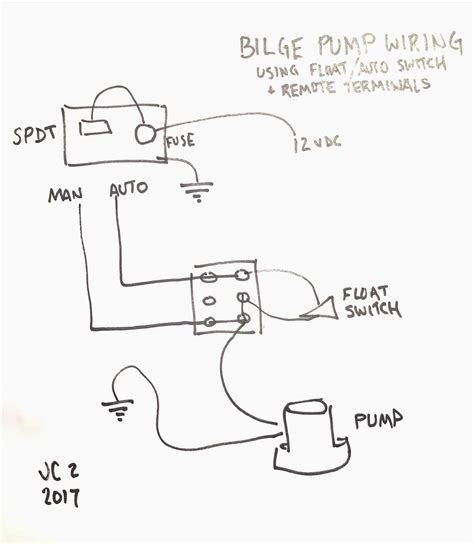 BILGE PUMP WIRING
USING FLOAT/AUTO SWITCH
+ REMOTE TERMINALS
SPDT
FUSE
12 VDC
MAN
AUTO
FLOAT
SWITCH
PUMP
JC 2
2017